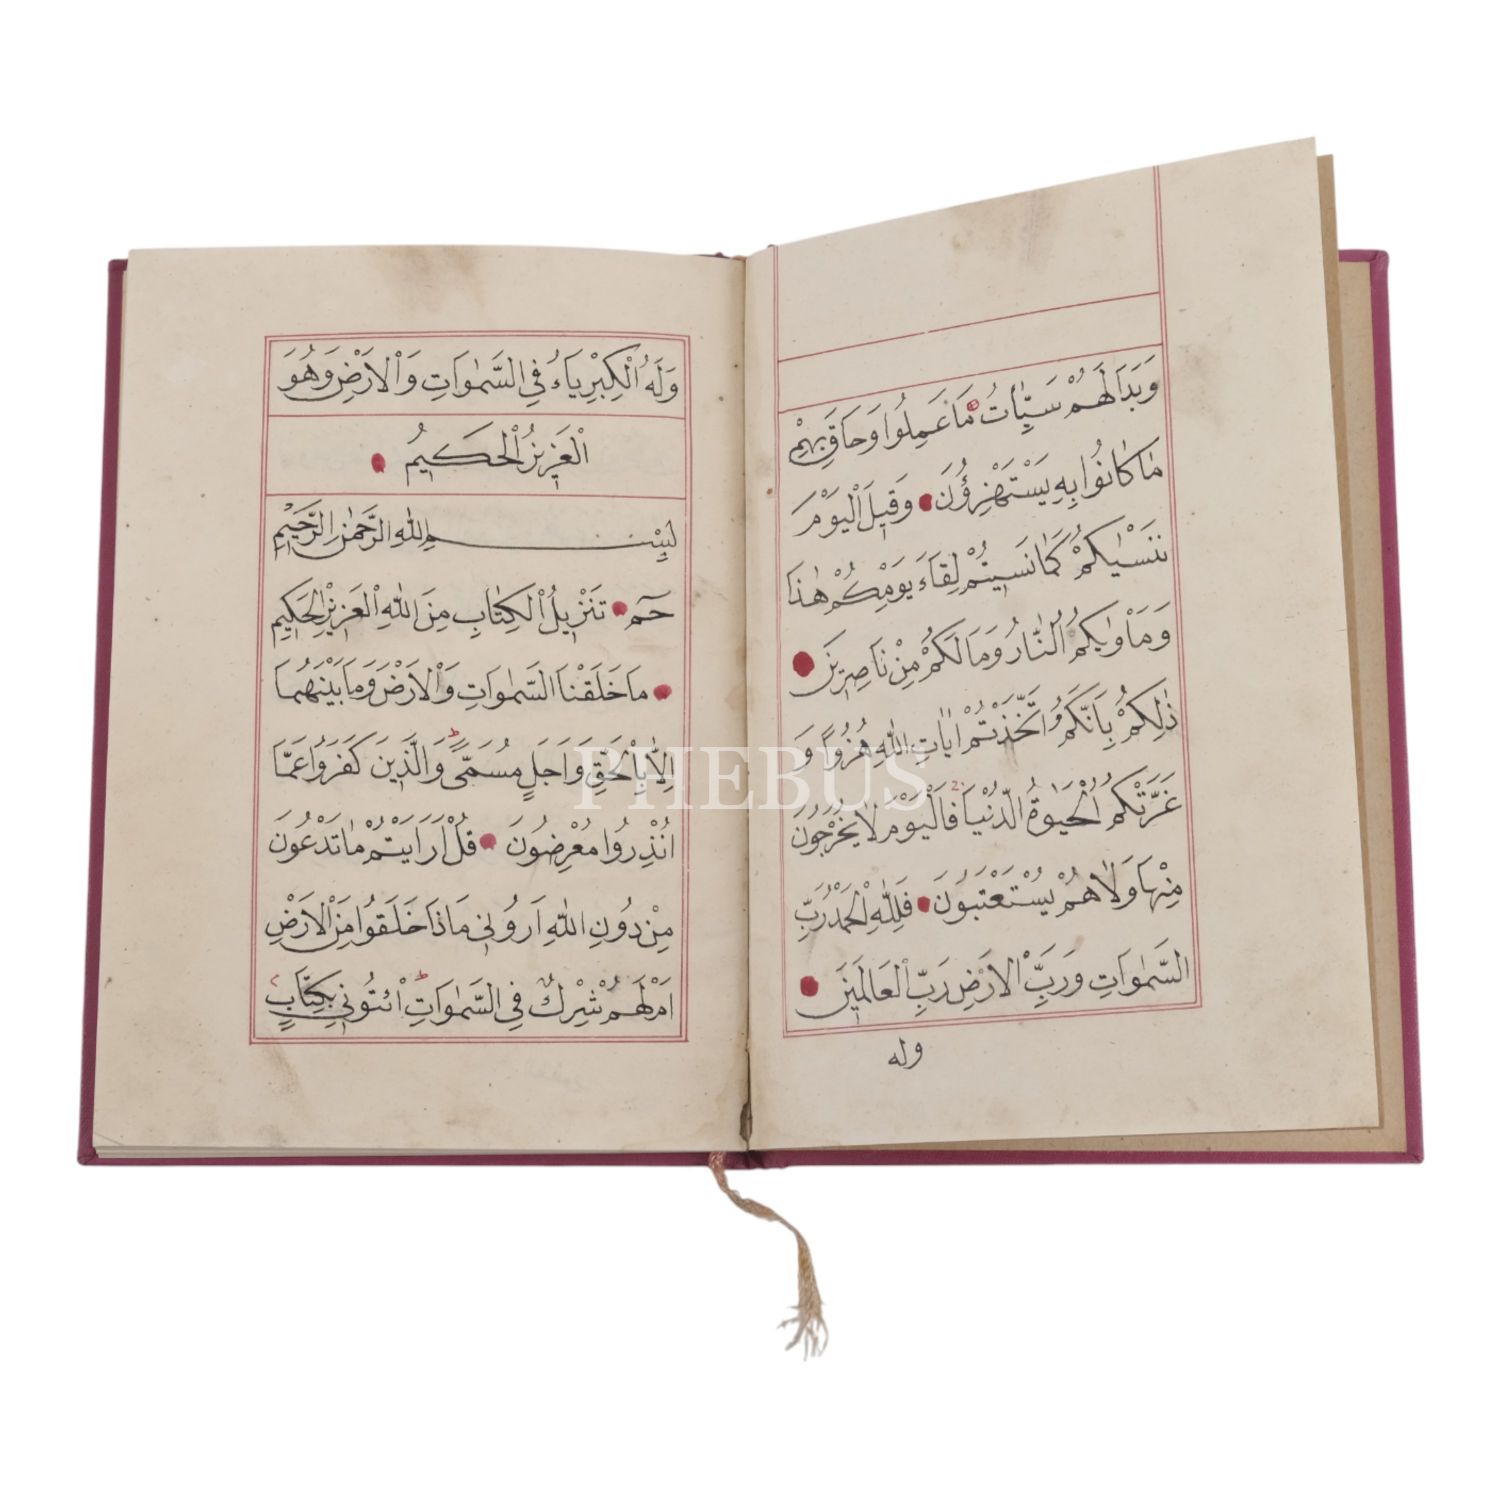 وَبَدَالَهُمْ سَيِّاٰتُ مَا عَمِلُوا وَحَاقَ بِهِمْ
مَا كَانُوا بِهِ يَسْتَهْزِؤُنَ وَقِيلَ الْيَوْمَ
نَنْسٰيكُمْ كَمَا نَسِيتُمْ لِقَاءَ يَوْمِكُمْ هٰذَا
وَمَأْوٰيكُمُ النَّارُ وَمَا لَكُمْ مِنْ نَاصِرِينَ
ذٰلِكُمْ بِاَنَّكُمُ اتَّخَذْتُمْ اٰيَاتِ اللّٰهِ هُزُوًا وَ
غَرَّتْكُمُ الْحَيٰوةُ الدُّنْيَا فَالْيَوْمَ لَا يُخْرَجُونَ
مِنْهَا وَلَا هُمْ يُسْتَعْتَبُونَ فَلِلّٰهِ الْحَمْدُ رَبِّ
السَّمٰوَاتِ وَرَبِّ الْاَرْضِ رَبِّ الْعَالَمِينَ
وله
وَلَهُ الْكِبْرِيَاءُ فِي السَّمٰوَاتِ وَالْاَرْضِ وَهُوَ
الْعَزِيزُ الْحَكِيمُ
بِسْمِ اللّٰهِ الرَّحْمٰنِ الرَّحِيمِ
حٰمٓ تَنْزِيلُ الْكِتَابِ مِنَ اللّٰهِ الْعَزِيزِ الْحَكِيمِ
مَا خَلَقْنَا السَّمٰوَاتِ وَالْاَرْضَ وَمَا بَيْنَهُمَا
اِلَّا بِالْحَقِّ وَاَجَلٍ مُسَمًّى وَالَّذِينَ كَفَرُوا عَمَّا
اُنْذِرُوا مُعْرِضُونَ قُلْ اَرَاَيْتُمْ مَا تَدْعُونَ
مِنْ دُونِ اللّٰهِ اَرُونِي مَاذَا خَلَقُوا مِنَ الْاَرْضِ
اَمْ لَهُمْ شِرْكٌ فِي السَّمٰوَاتِ ائْتُونِي بِكِتَابٍ
PHEBUS